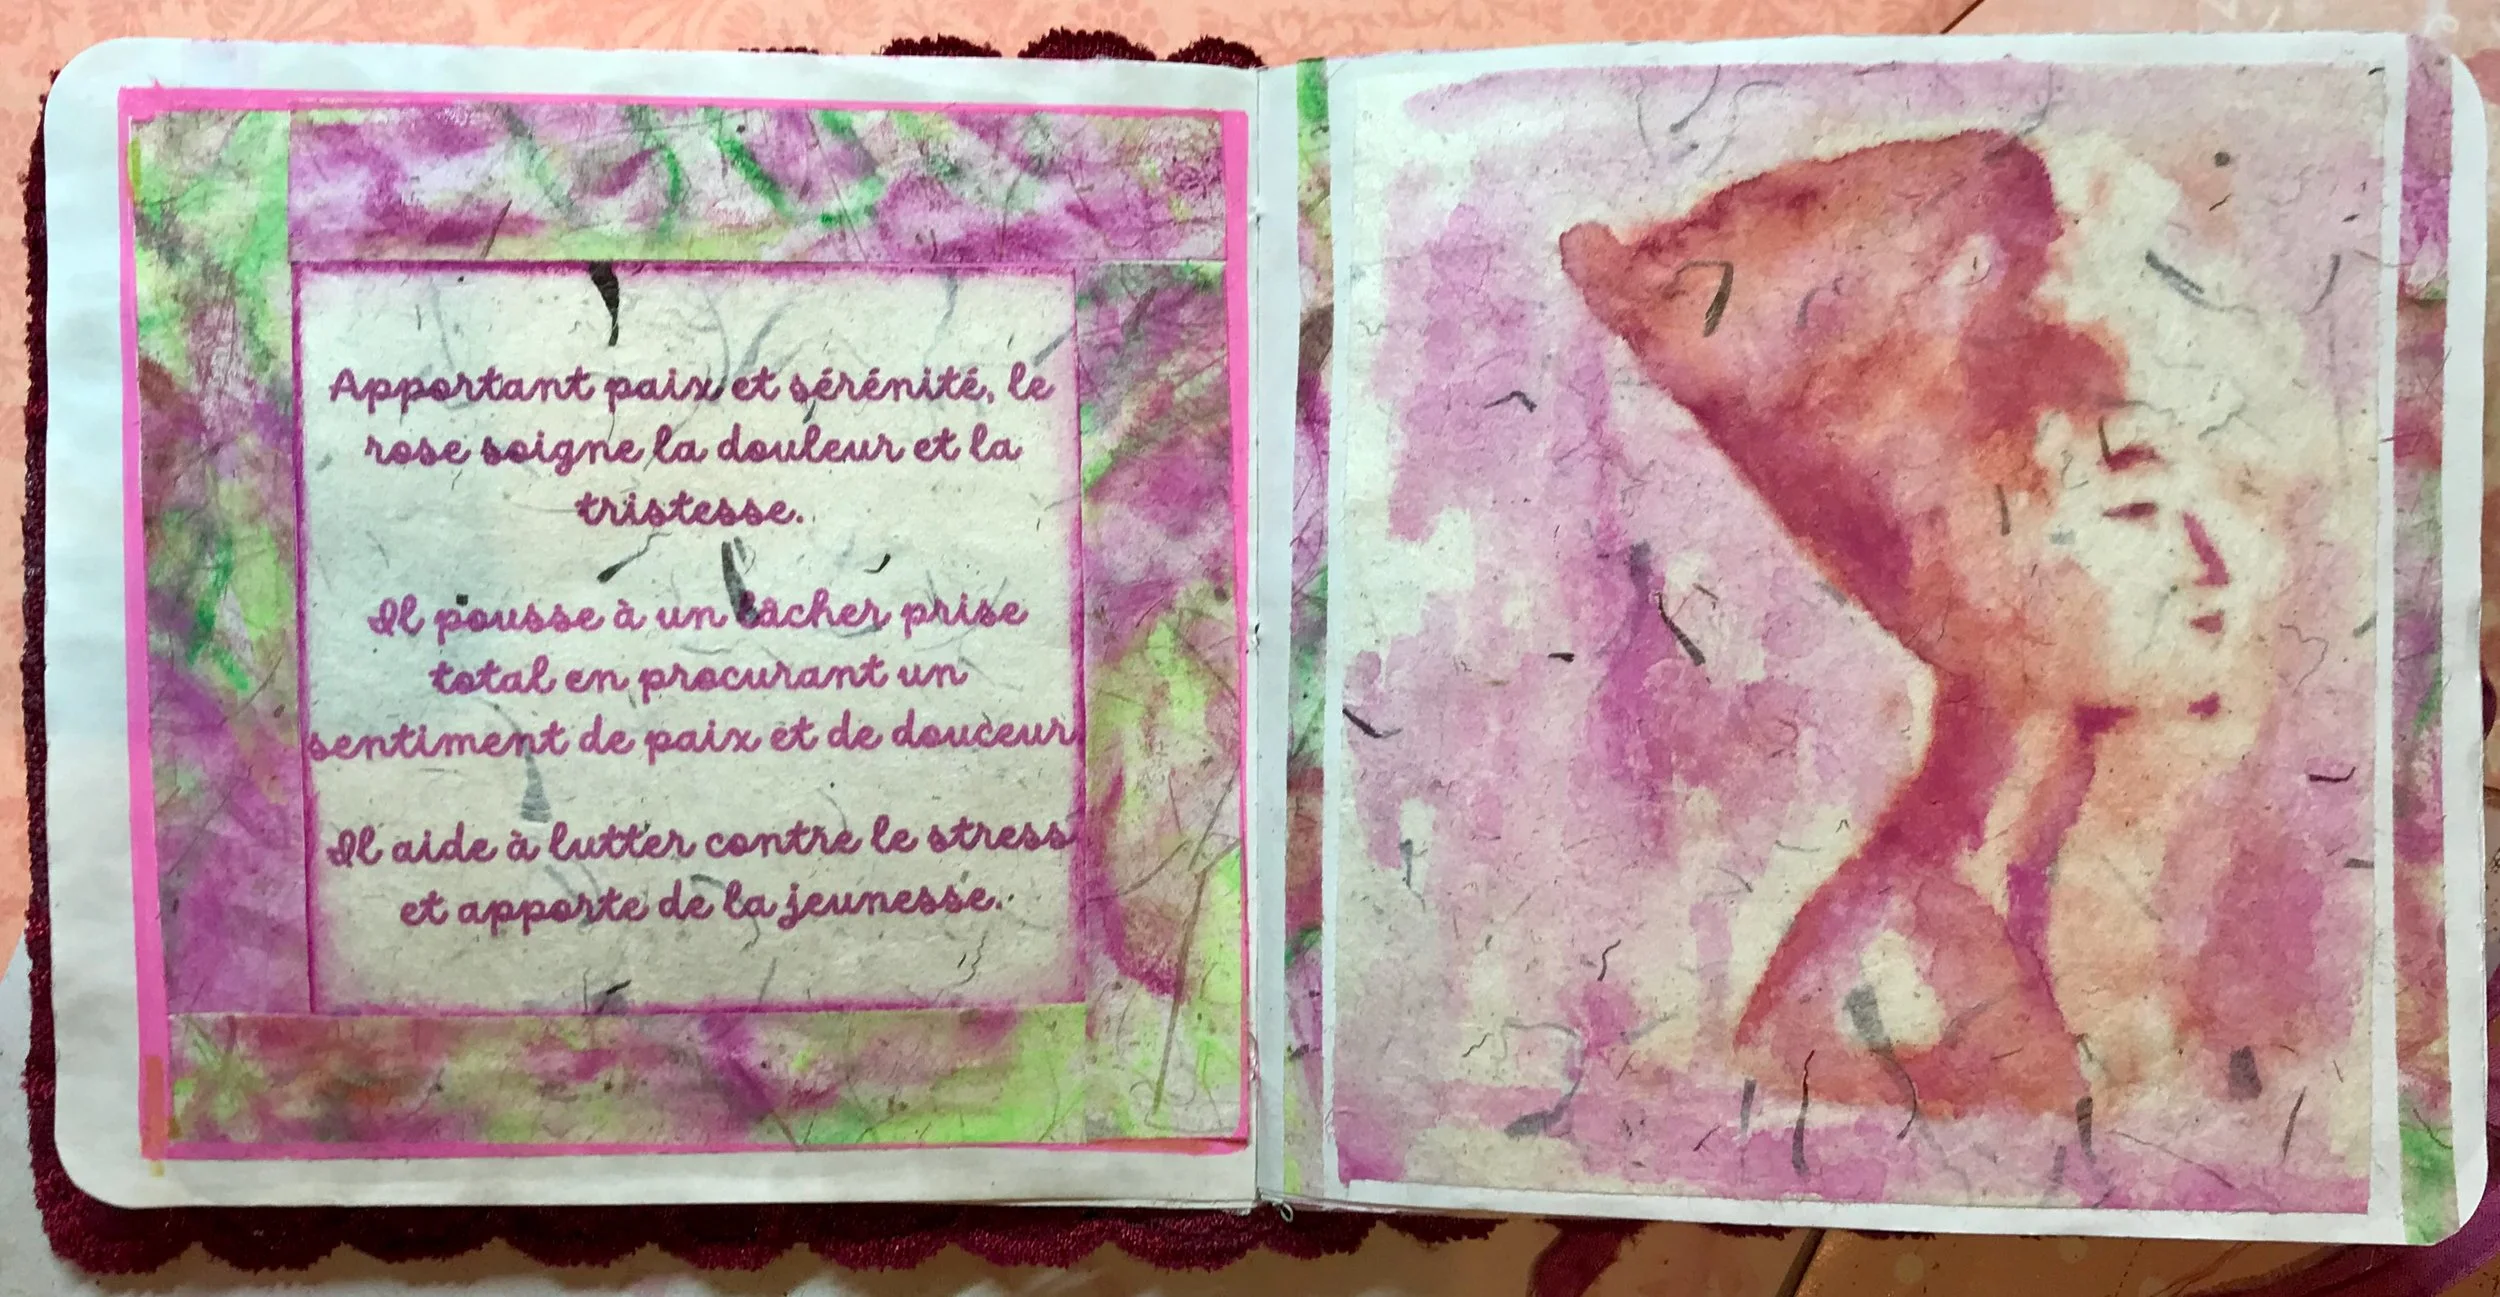 Apportant paix et sérénité, le
rose soigne la douleur et la
tristesse.
Il pousse à un lâcher prise
total en procurant un
sentiment de paix et de douceur
Il aide à lutter contre le stress
et apporte de la jeunesse.